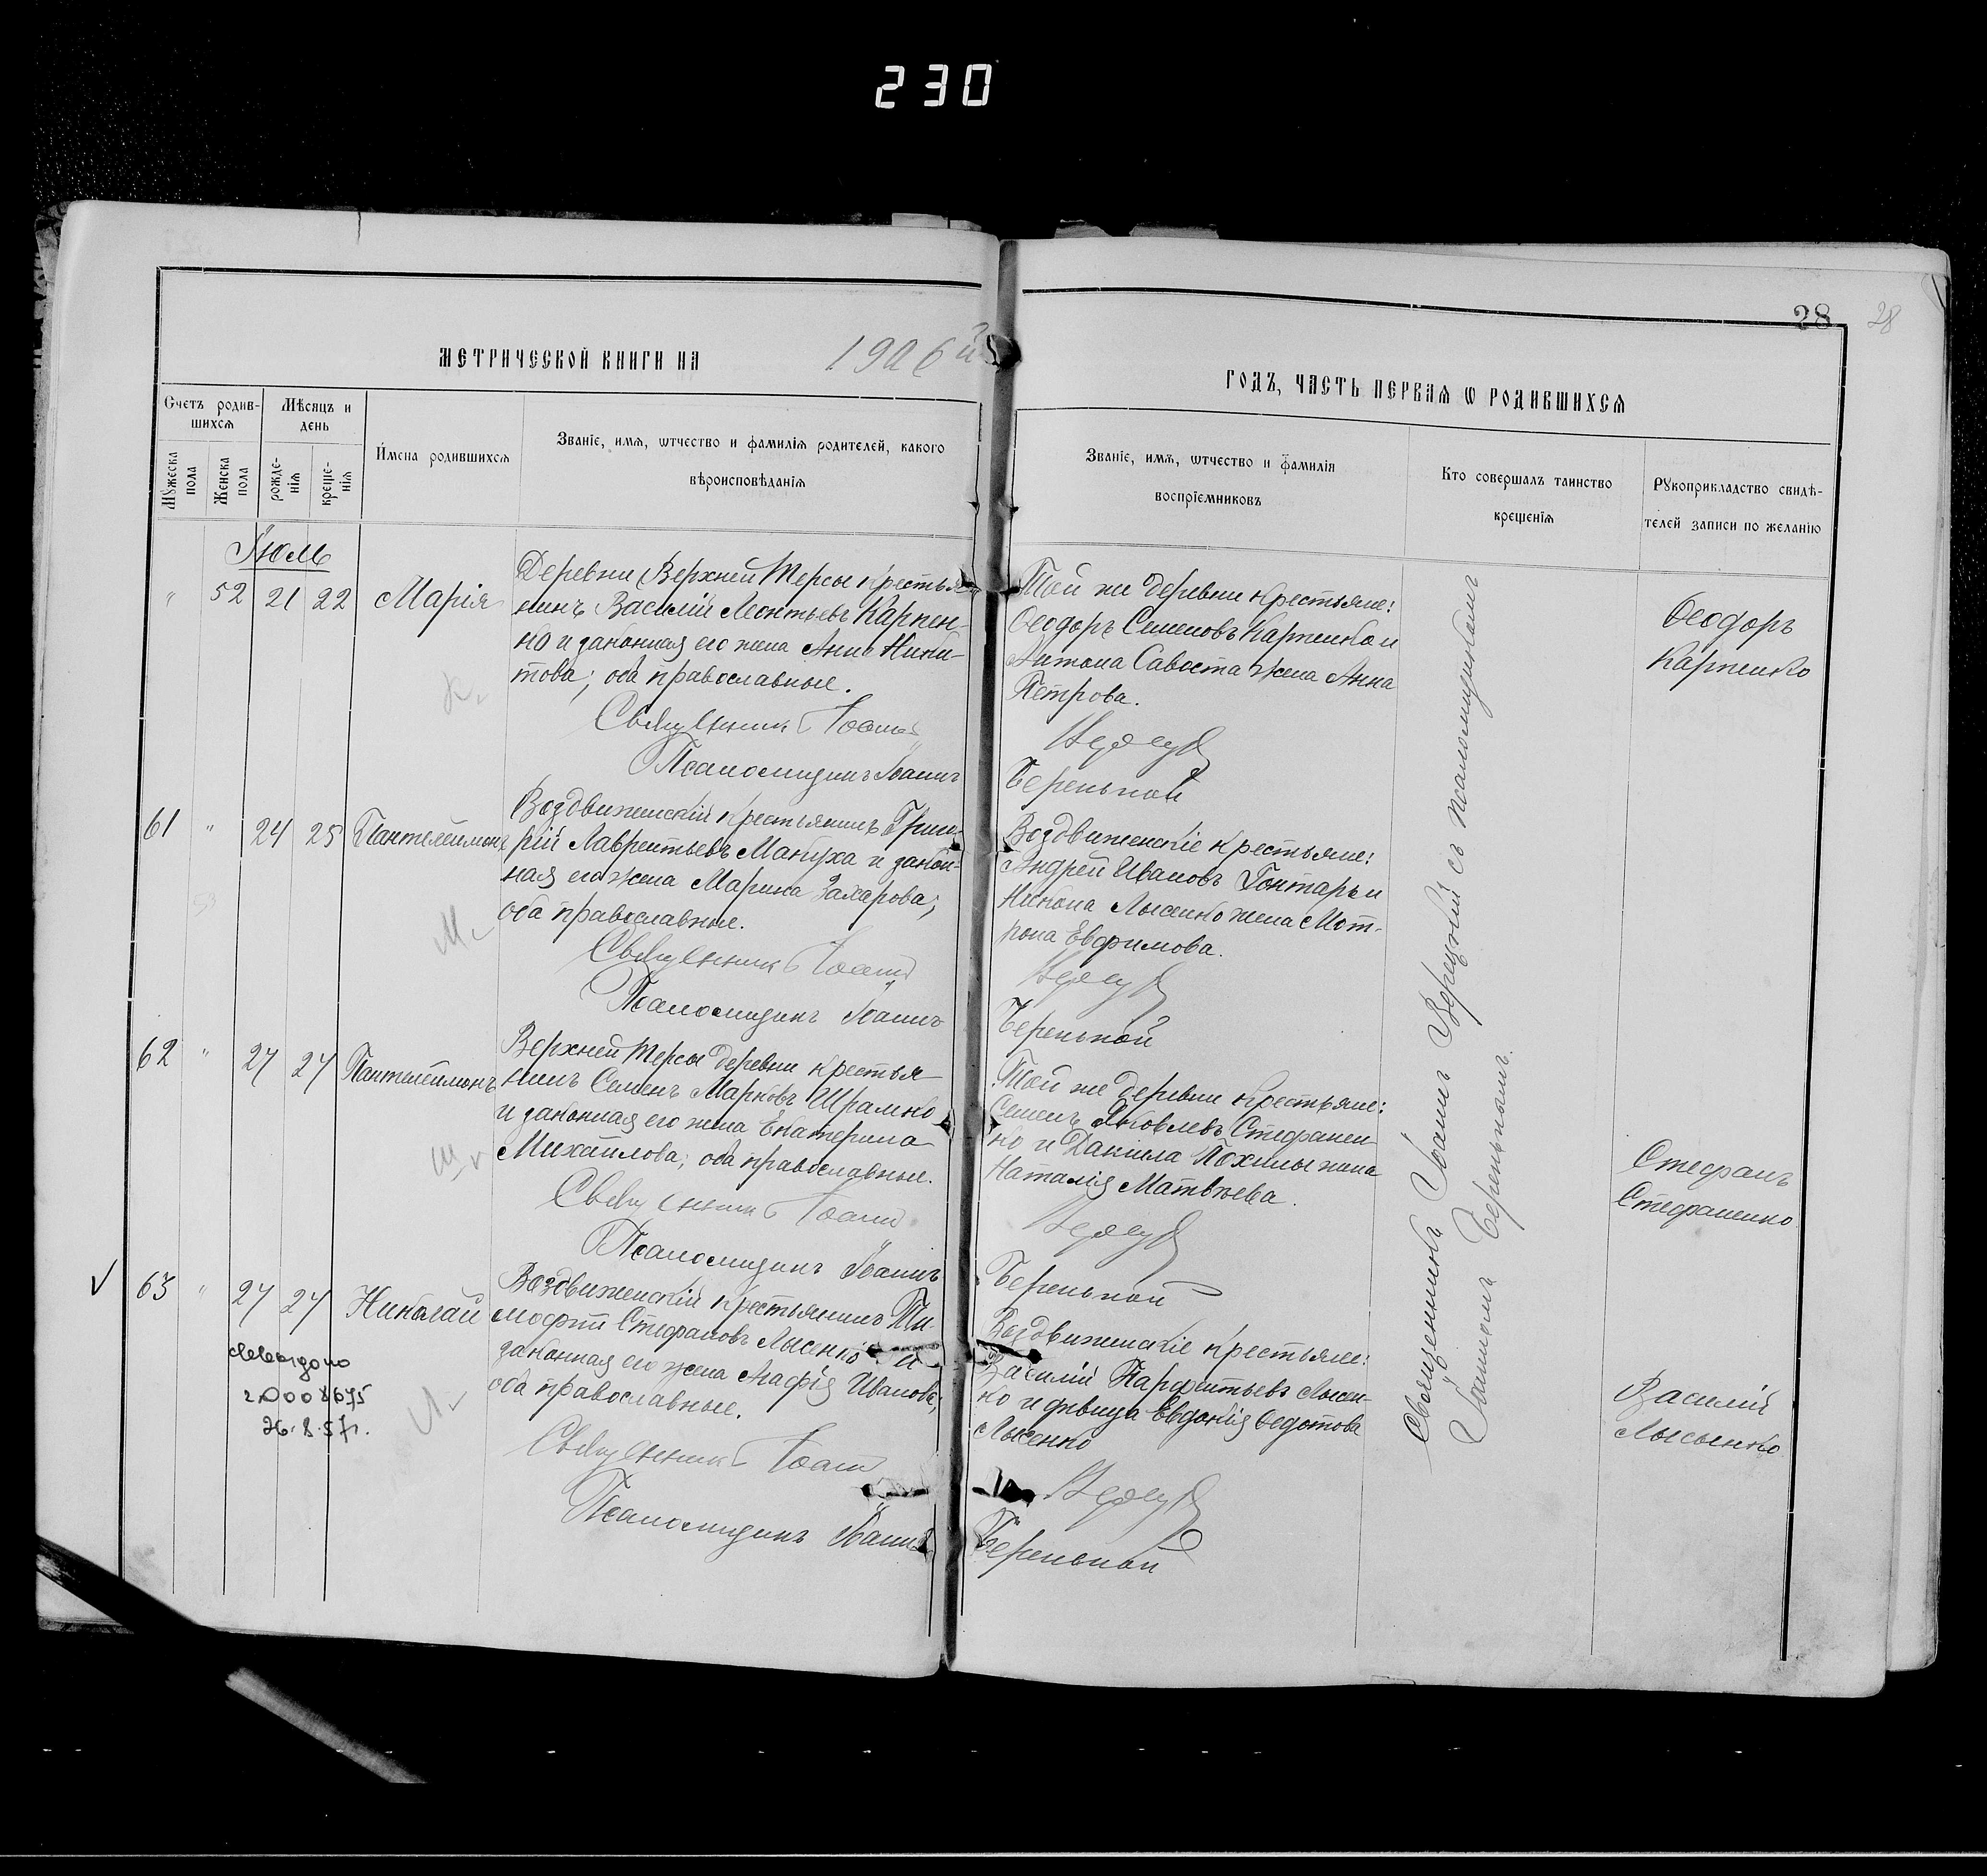 230
28
28
МЕТРИЧЕСКОЙ КНИГИ НА 1906 й
ГОДЪ, ЧАСТЬ ПЕРВАЯ Ѡ РОДИВШИХСЯ
Счетъ родив-
шихся
Мѣсяцъ и
день
Мꙋжеска
пола
Женска
пола
рожде-
нія
креще-
нія
Имена родившихся
Званіе, имя, ѡтчество и фамилія родителей, какого
вѣроисповѣданія
Званіе, имя, ѡтчество и фамилія
воспріемниковъ
Кто совершалъ таинство
крещенія
Рꙋкоприкладство свидѣ-
телей записи по желанію
Іюль
" 52 21 22 Марія
Деревни Верхней Терсы крестья-
нинъ Василій Леонтьевъ Карпен-
ко и законная его жена Анна Ники-
това; оба православные.
Священникъ Іоаннъ
Псаломщикъ Іоаннъ
Той же деревни крестьяне:
Ѳеодоръ Семеновъ Карпенко и
Антона Савоста жена Анна
Петрова.
Верецкій
Беренькой
Ѳеодоръ
Карпенко
К
61 " 24 25 Пантелеимонъ
Воздвиженскій крестьянинъ Григо-
рій Лаврентьевъ Макуха и закон-
ная его жена Марина Захарова;
оба православные.
Священникъ Іоаннъ
Псаломщикъ Іоаннъ
Воздвиженскіе крестьяне:
Андрей Ивановъ Гонтарь и
Никона Лысенко жена Мот-
рона Евфимова.
Беренькой
М
62 " 27 27 Пантелеимонъ
Верхней Терсы деревни крестья-
нинъ Семенъ Марковъ Шрамко
и законная его жена Екатерина
Михайлова; оба православные.
Священникъ Іоаннъ
Псаломщикъ Іоаннъ
Той же деревни крестьяне:
Семенъ Яковлевъ Стефанен-
ко и Даніила Похилы жена
Наталія Матвѣева.
Беренькой
Стефанъ
Стефаненко
Ш
63 " 27 27 Николай
Воздвиженскій крестьянинъ Ти-
мофей Стефановъ Лысенко и
законная его жена Агафія Иванова;
оба православные.
Священникъ Іоаннъ
Псаломщикъ Іоаннъ
Воздвиженскіе крестьяне:
Василій Парфентьевъ Лысен-
ко и дѣвица Евдокія Ѳедотова
Лысенко
Беренькой
Василій
Лысенко
Л
26.8.57г.
Священникъ Іоаннъ Верецкій съ псаломщикомъ
Іоанномъ Беренькимъ.